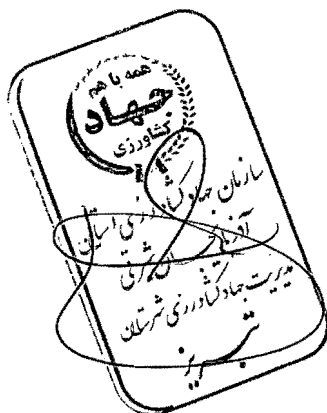 همه با هم
جهاد
کشاورزی
سازمان جهاد کشاورزی استان
آذربایجان شرقی
مدیریت جهاد کشاورزی شهرستان
تبریز